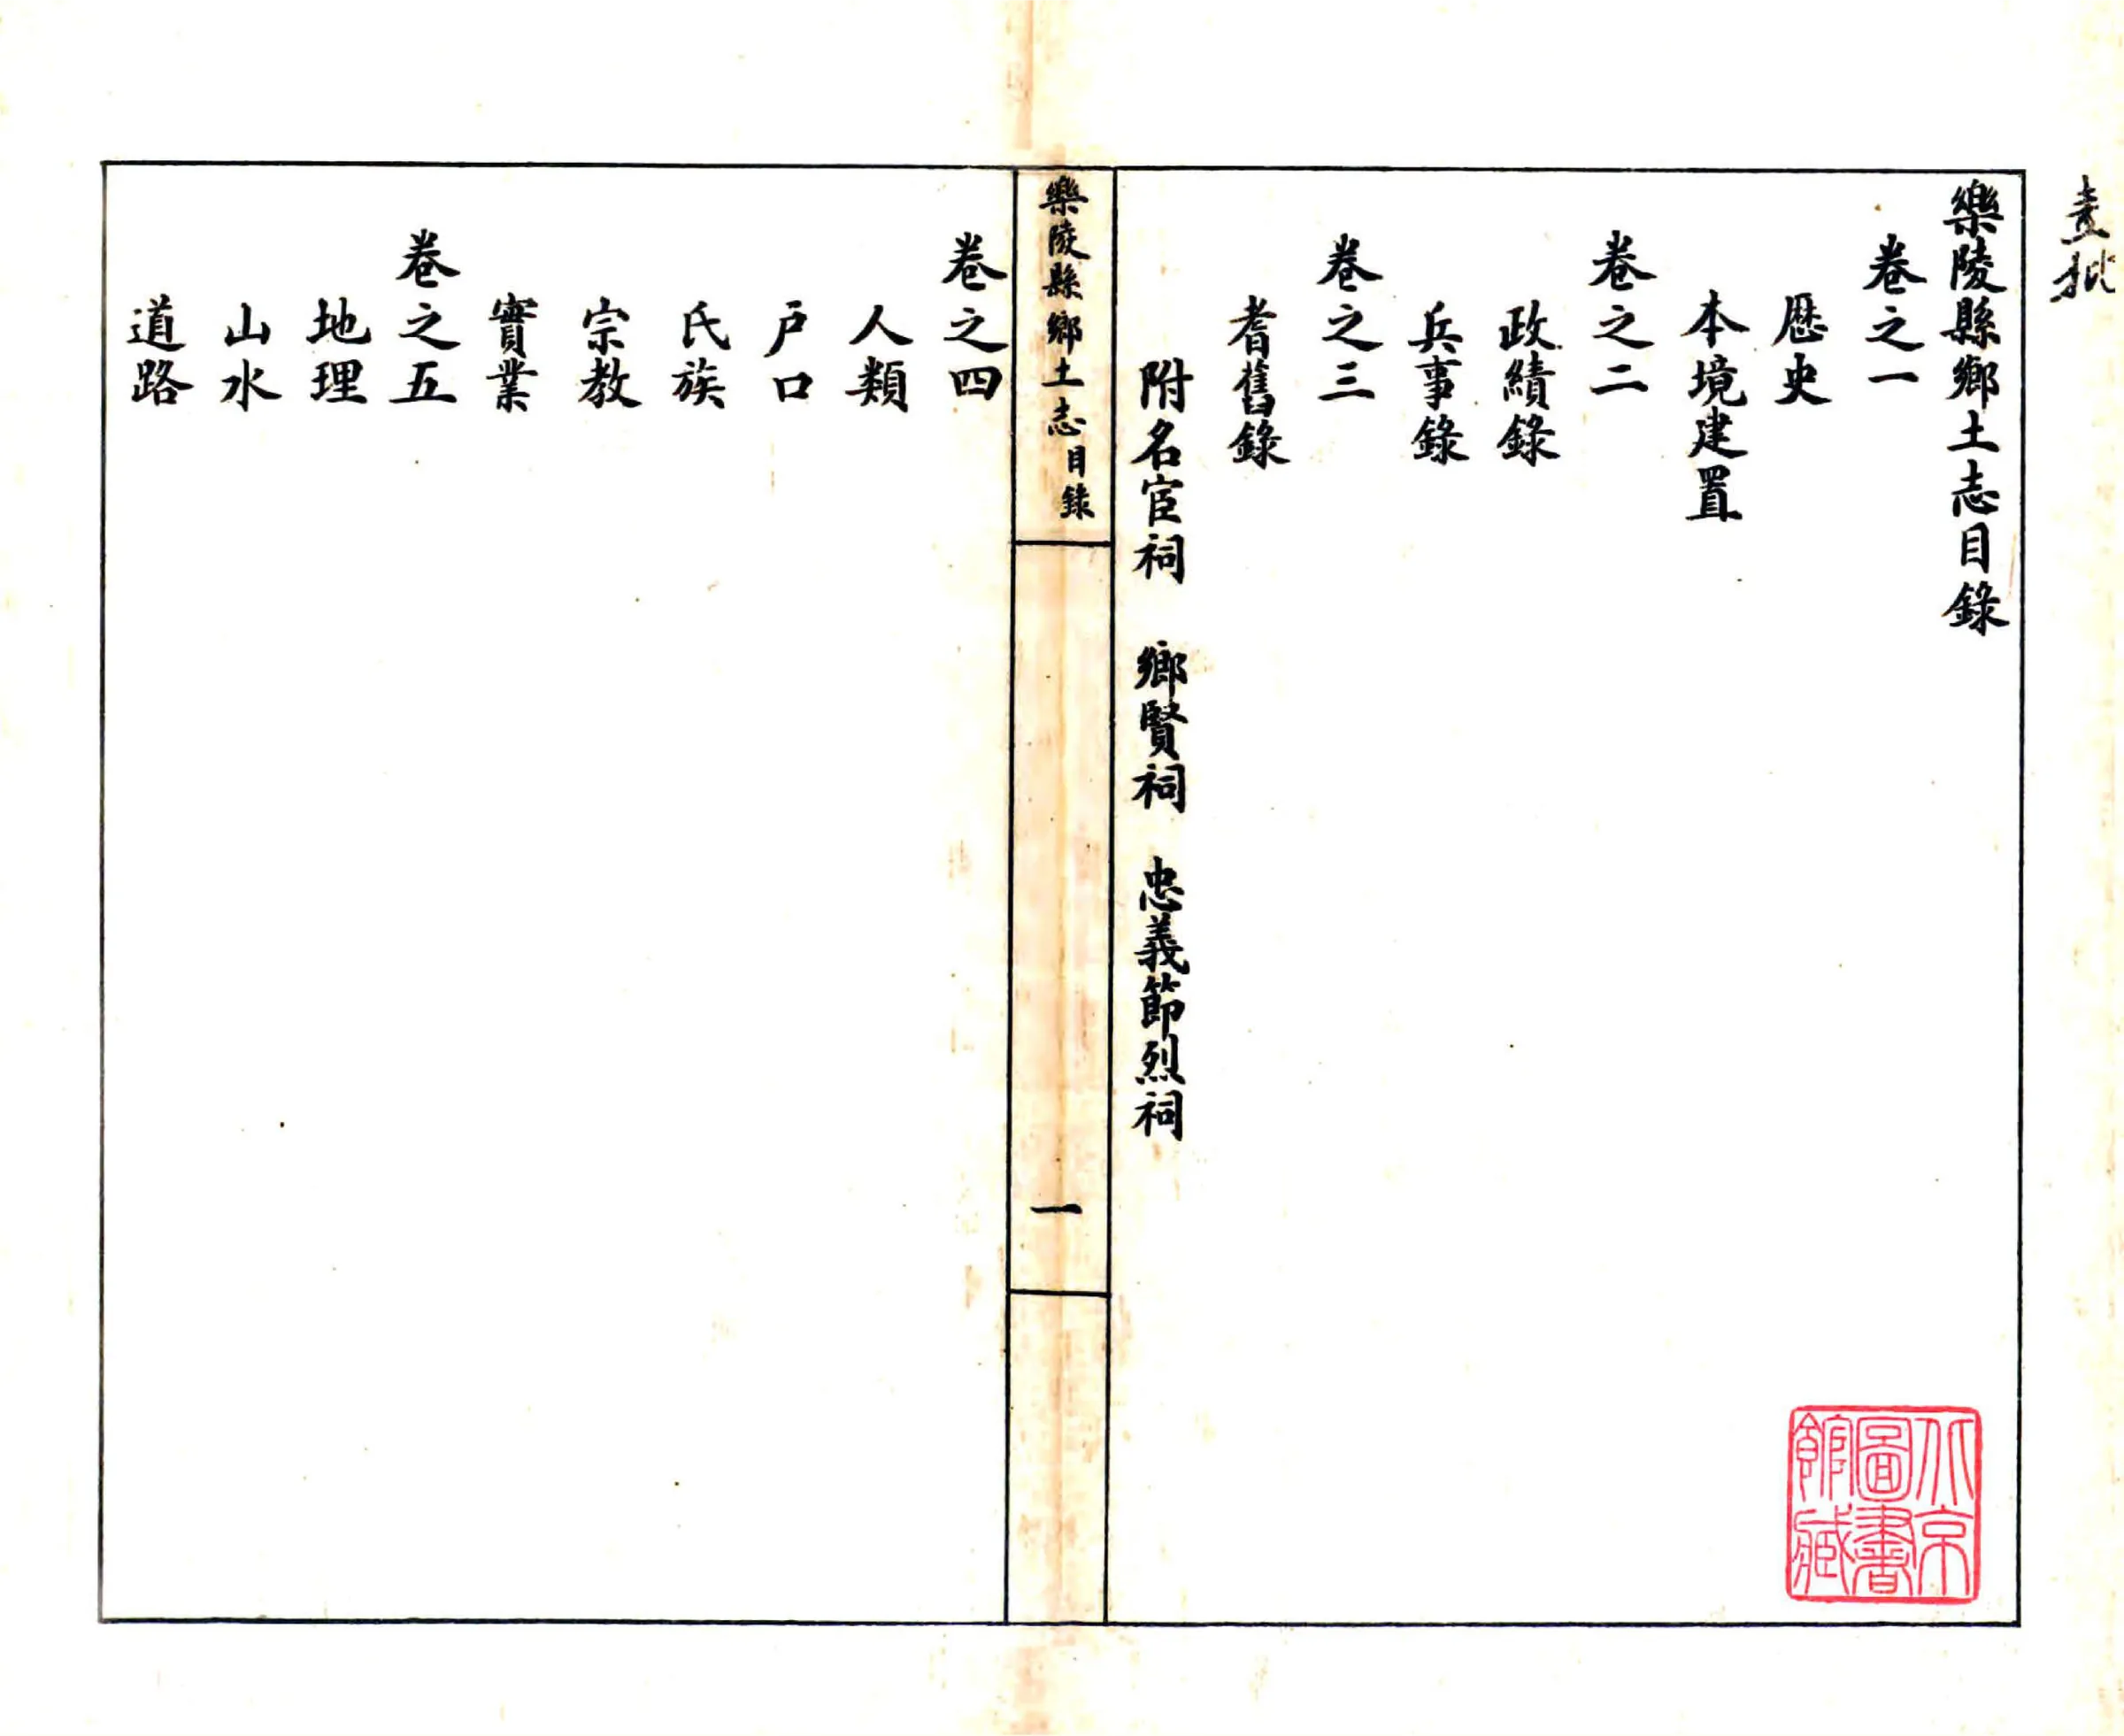 樂陵縣鄉土志目錄
卷之一
歷史
本境建置
卷之二
政績錄
兵事錄
卷之三
耆舊錄
附名宦祠 鄉賢祠 忠義節烈祠
樂陵縣鄉土志目錄
一
卷之四
人類
戶口
氏族
宗教
實業
卷之五
地理
山水
道路
北京
圖書
館藏